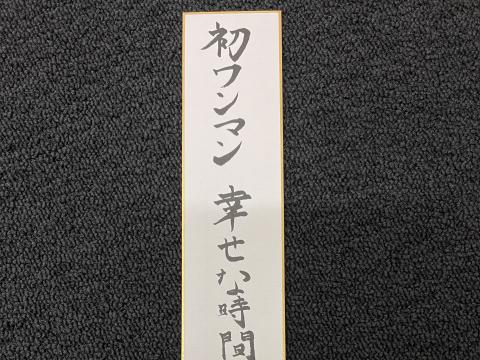 初ワンマン 幸せな時間